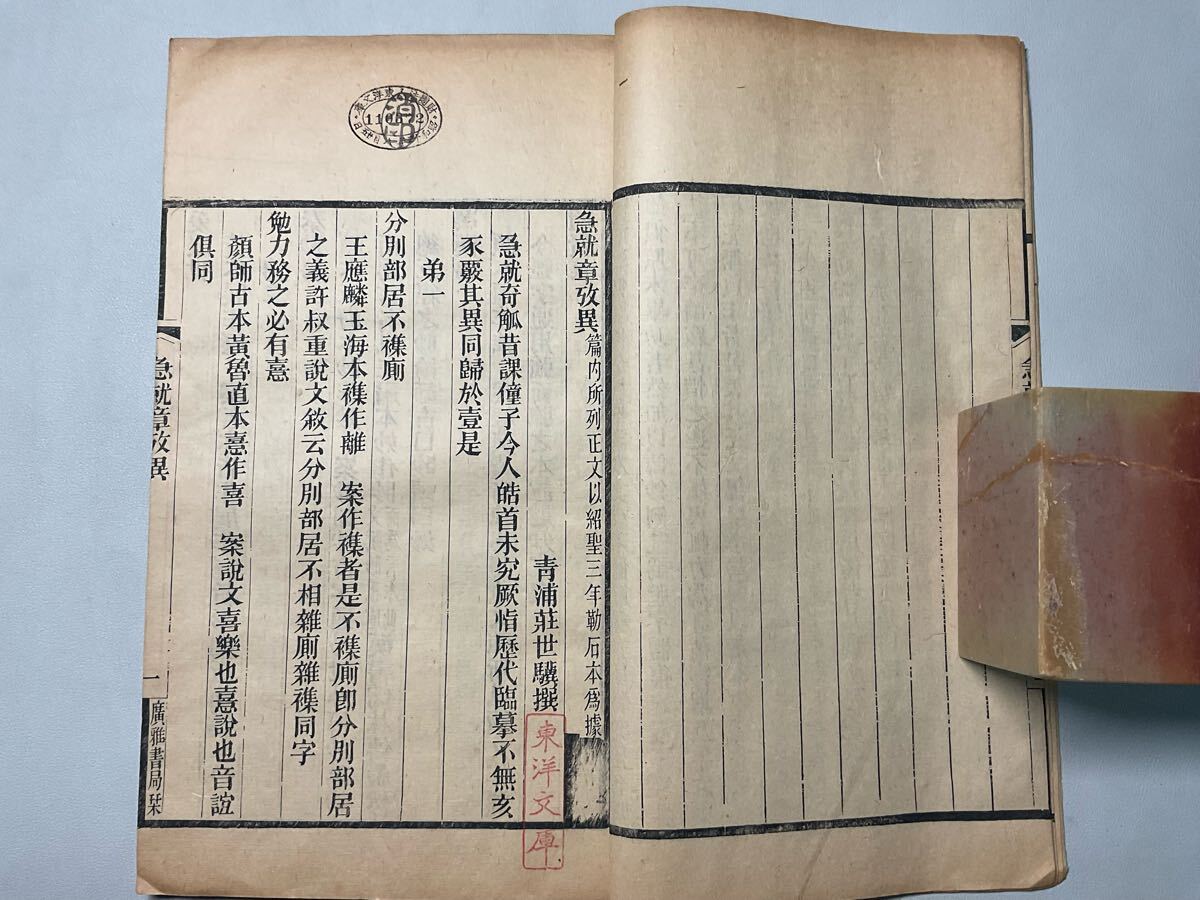 急就章攷異篇内所列正文以紹聖三年勒石本爲據
青浦莊世驥撰
急就奇觚昔課僮子今人皓首未究厥恉歷代臨摹不無亥
豕覈其異同歸於壹是
弟一
分別部居不襍廁
王應麟玉海本襍作離 案作襍者是不襍廁卽分別部居
之義許叔重說文敘云分別部居不相雜廁雜襍同字
勉力務之必有憙
顏師古本黃魯直本憙作喜 案說文喜樂也憙說也音誼
俱同
急就章攷異
一
廣雅書局栞
東洋文庫
110872
急就